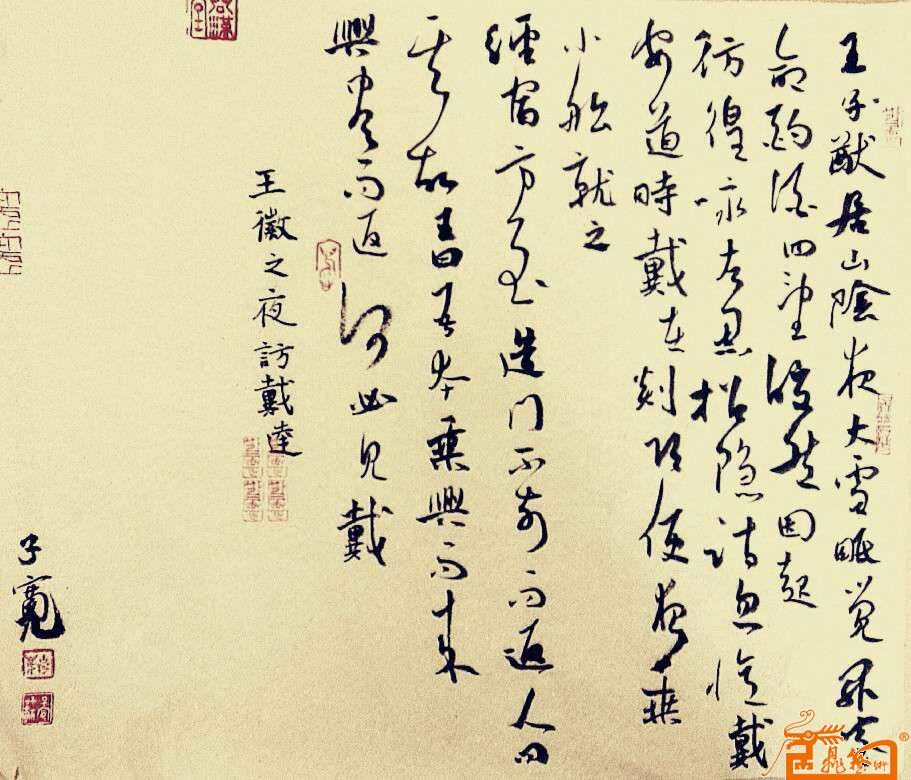 王子猷居山陰夜大雪眠覺開室
命酌酒四望皎然因起
彷徨詠左思招隱詩忽憶戴
安道時戴在剡即便夜乘
小船就之
經宿方至造門不前而返人問
其故王曰吾本乘興而來
興盡而返何必見戴
王徽之夜訪戴逵
子寬